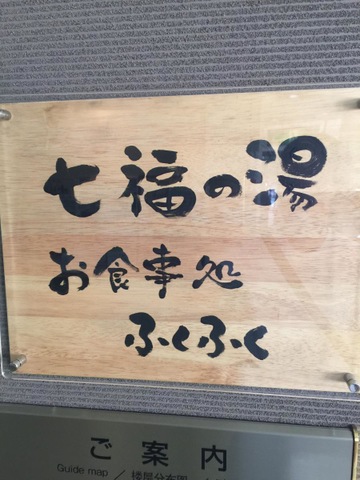 七福の湯
お食事処
ふくふく
ご案内
Guide map ／ 楼层分布图